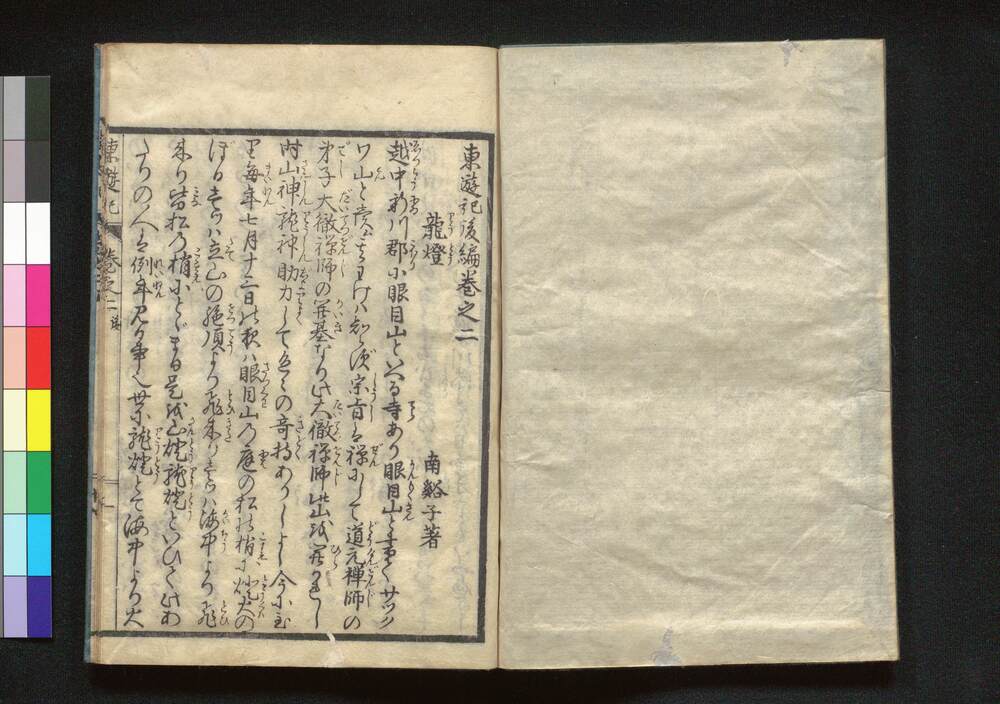 東遊記後編巻之二
龍燈
南谿子著
越中新川郡に眼目山といへる寺あり眼目山と書てサツク
ワ山と党へよりけハ知らす宗旨は禅にして道元禅師の
弟子大徹禅師の開基なり此大徹禅師此山を開かれし
時山神龍神助力して色々の奇特ありしよし今に至
り毎年七月十三日の夜ハ眼目山の庭の松の梢に燈火の
ぼる壱ツハ立山の絶頂より飛来り壱ツハ海中より飛
来り皆松の梢にとゞまる是を山燈龍燈といひて此あ
たりの人は例年見る事也世に龍燈とて海中より火
東遊記
巻之二